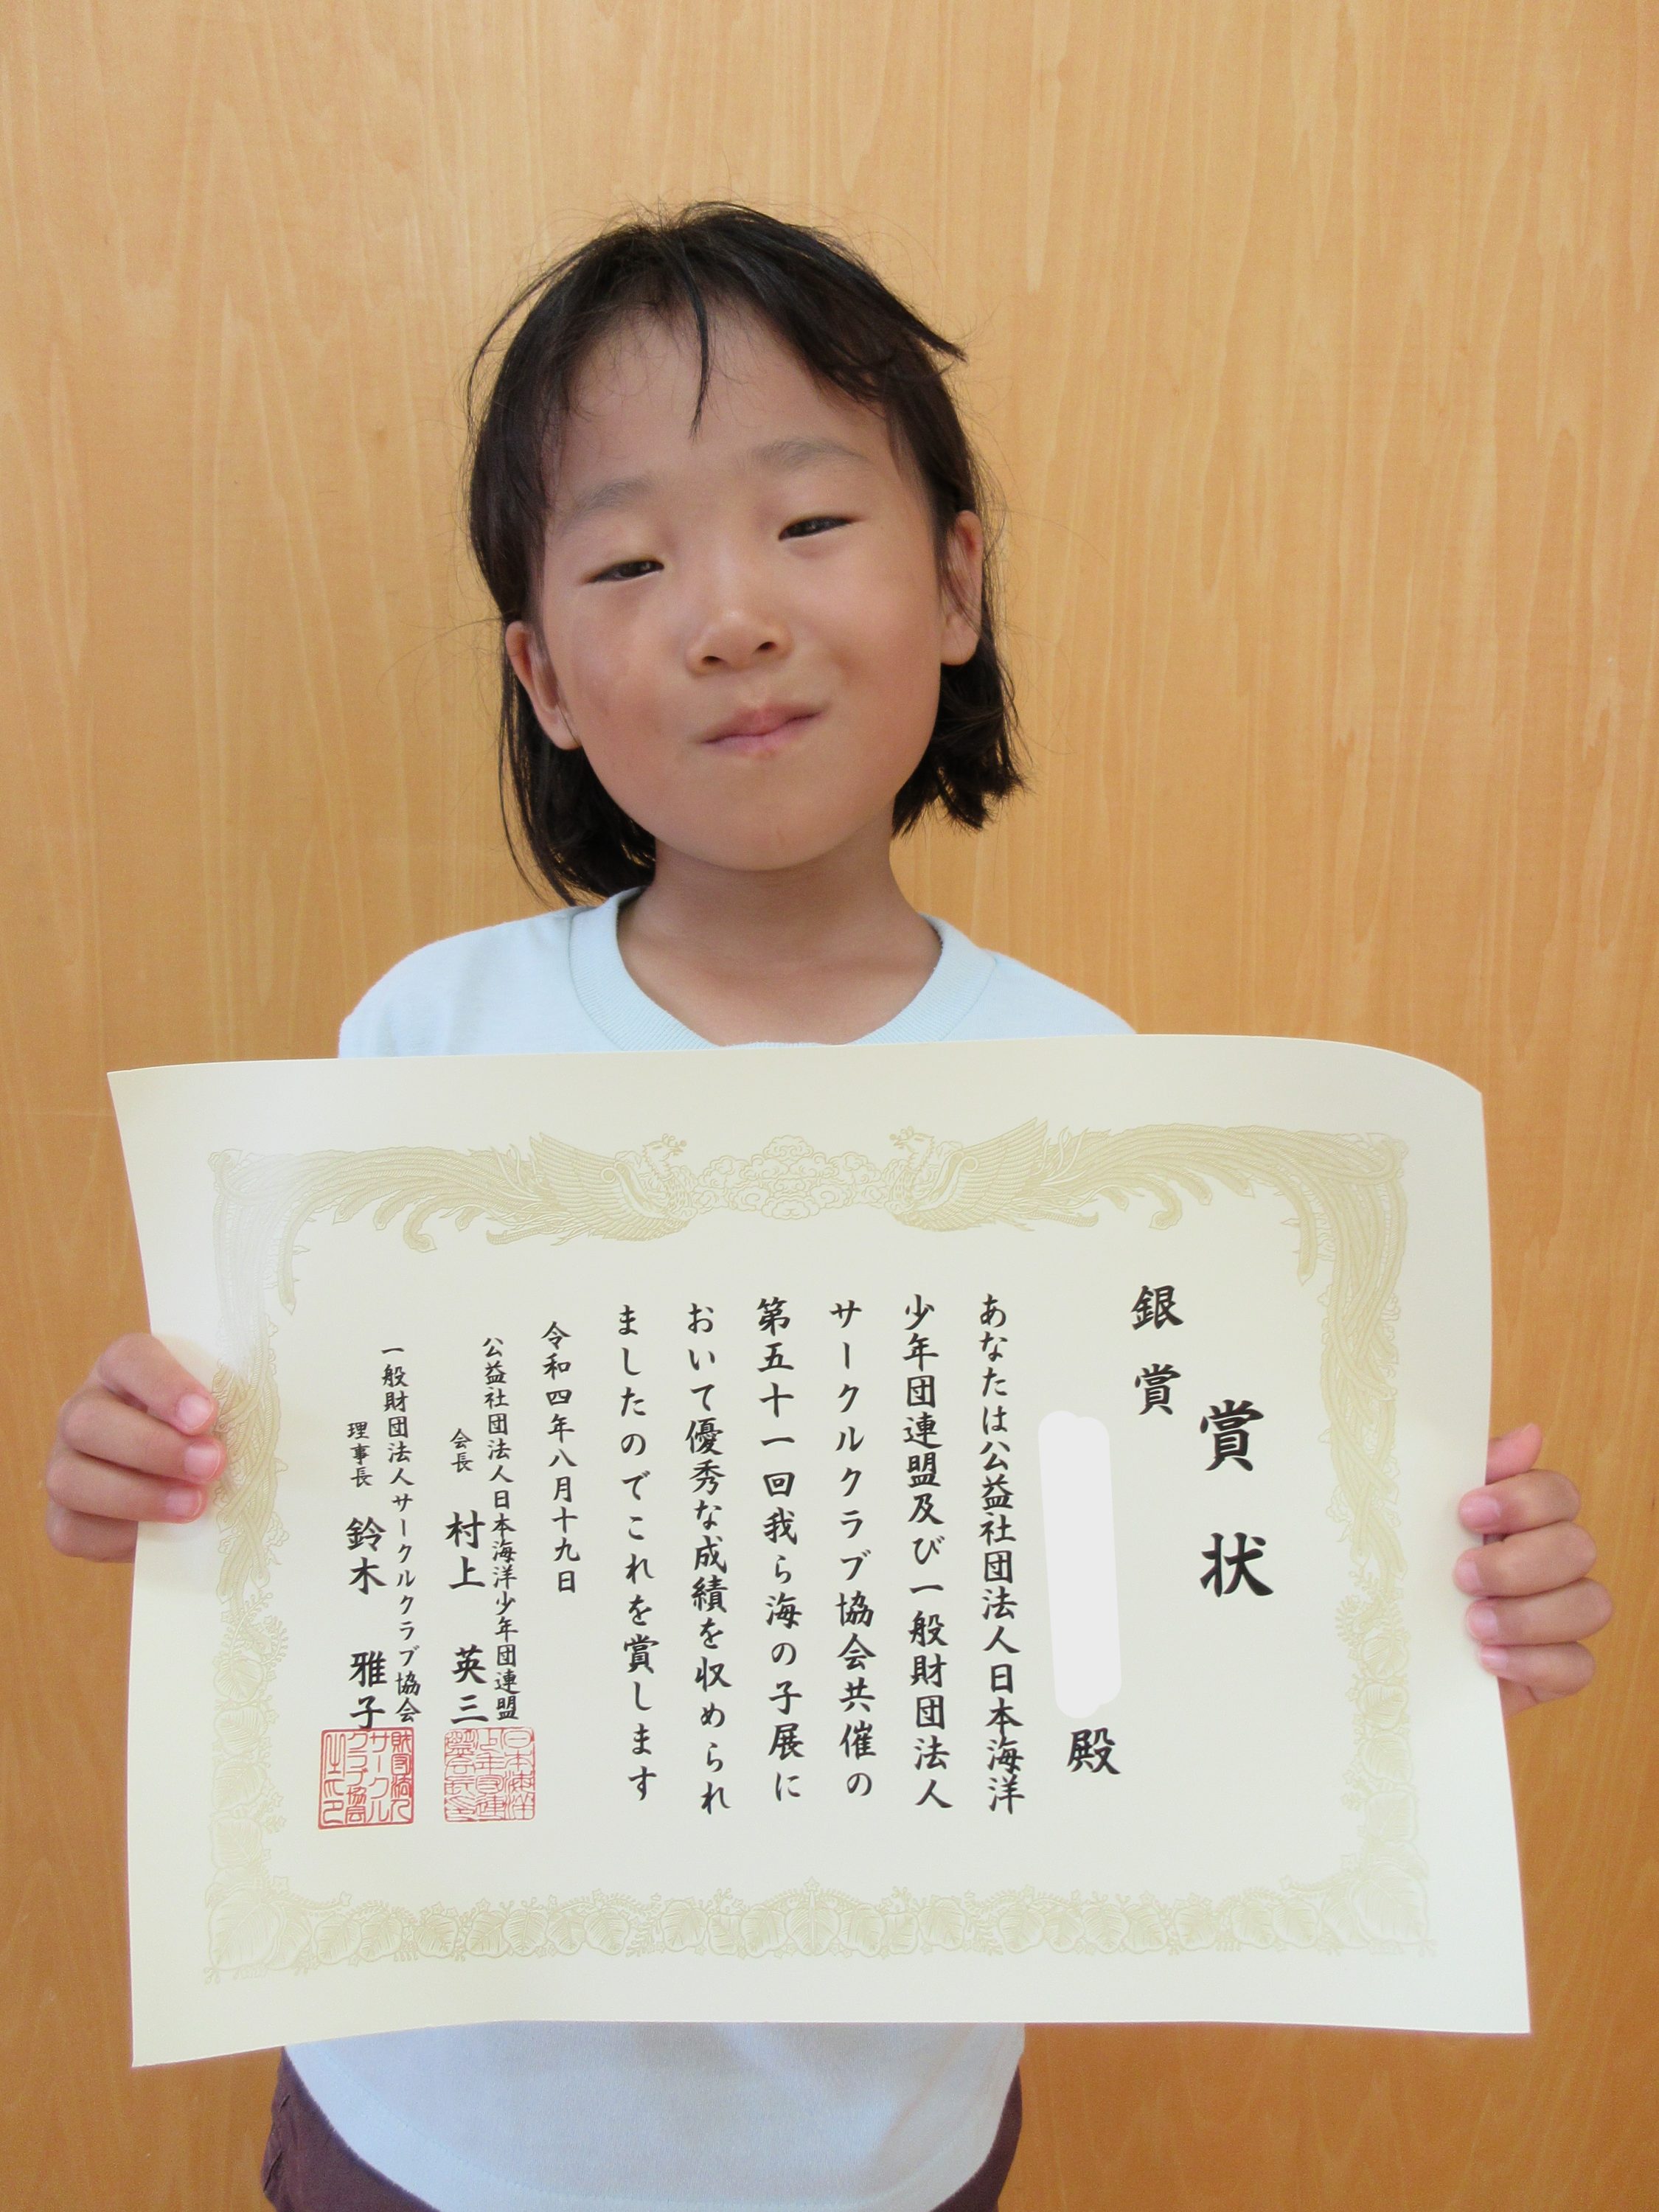 賞状
銀賞
殿
あなたは公益社団法人日本海洋
少年団連盟及び一般財団法人
サークルクラブ協会共催の
第五十一回我ら海の子展に
おいて優秀な成績を収められ
ましたのでこれを賞します
令和四年八月十九日
公益社団法人日本海洋少年団連盟
会長 村上 英三
一般財団法人サークルクラブ協会
理事長 鈴木 雅子